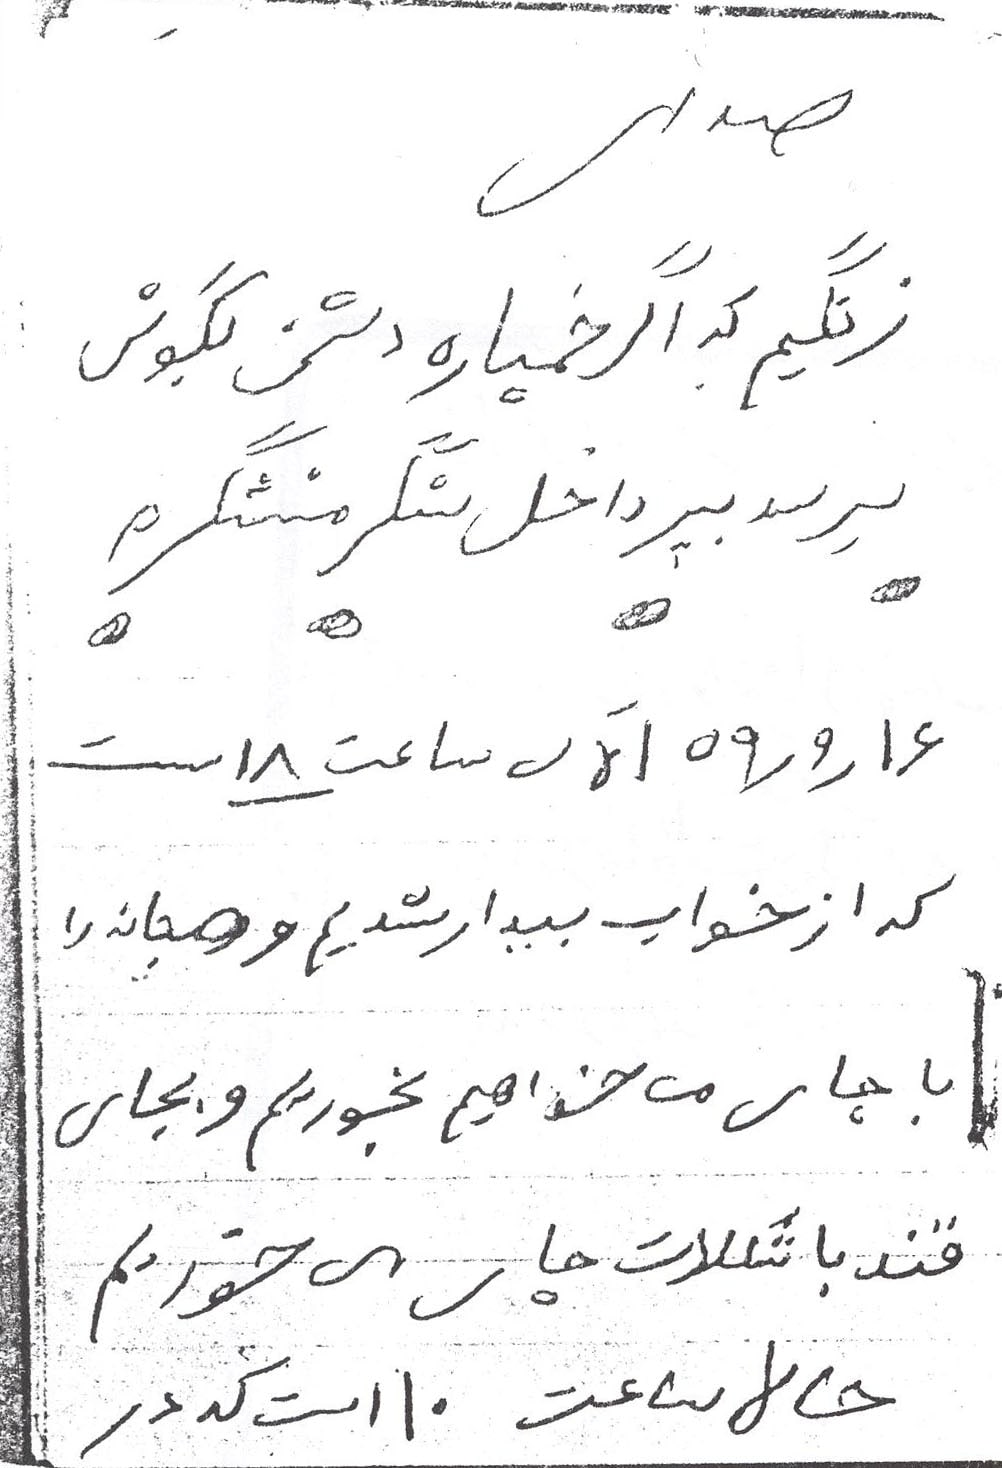 صدای
زنگیم که اگر خمپاره دشمن بگوش
برسد بپر داخل سنگر منشگرم
۱۶ ر ۹ ر ۵۹ الآن ساعت ۱۸ است
که از خواب بیدار شدیم و صبحانه را
با چای می خواهیم بخوریم و بجای
قند با شکلات چای می خوریم
حالا ساعت ۱۰ است که در